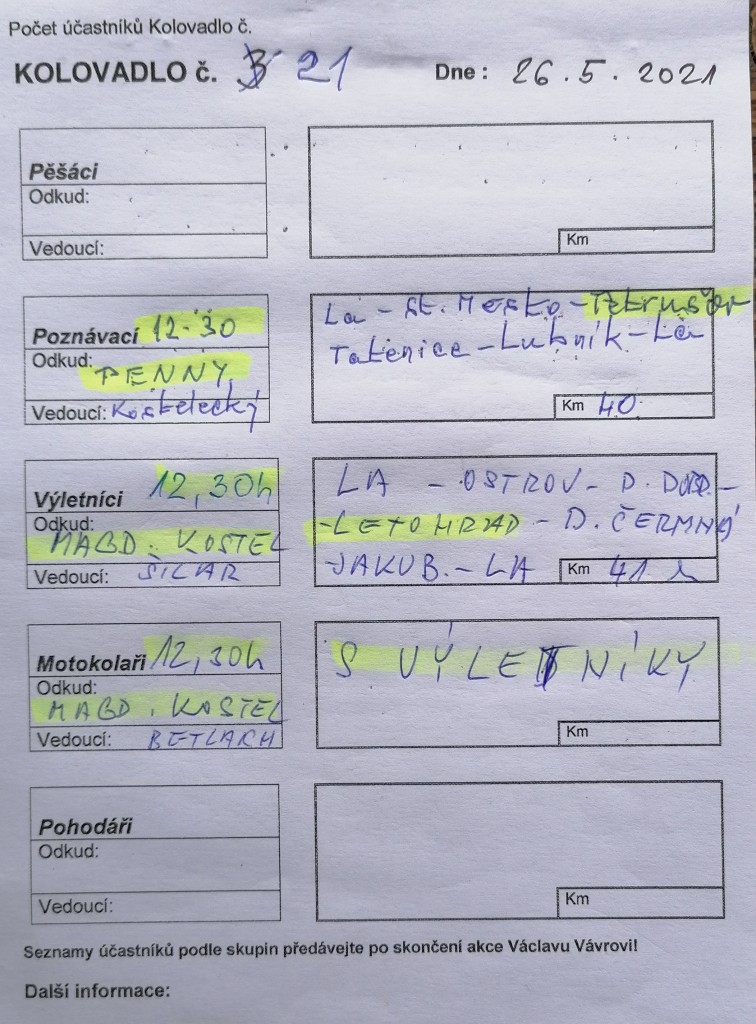 Počet účastníků Kolovadlo č.
KOLOVADLO č. 21 Dne : 26.5.2021
Pěšáci
Odkud:
Vedoucí:
Km
Poznávací 12.30
Odkud: PENNY
Vedoucí: Kostelecký
La - St. Mesto - Petrušov
Tatenice - Lubník - La
Km 40
Výletníci 12,30h
Odkud: MAGD. KOSTEL
Vedoucí: ŠILAR
LA - OSTROV - D. DOB. -
- LETOHRAD - D. ČERMNÁ
JAKUB. - LA Km 41
Motokolaři 12,30h
Odkud: MAGD. KOSTEL
Vedoucí: BETLACH
S VÝLETNÍKY
Km
Pohodáři
Odkud:
Vedoucí:
Km
Seznamy účastníků podle skupin předávejte po skončení akce Václavu Vávrovi!
Další informace: